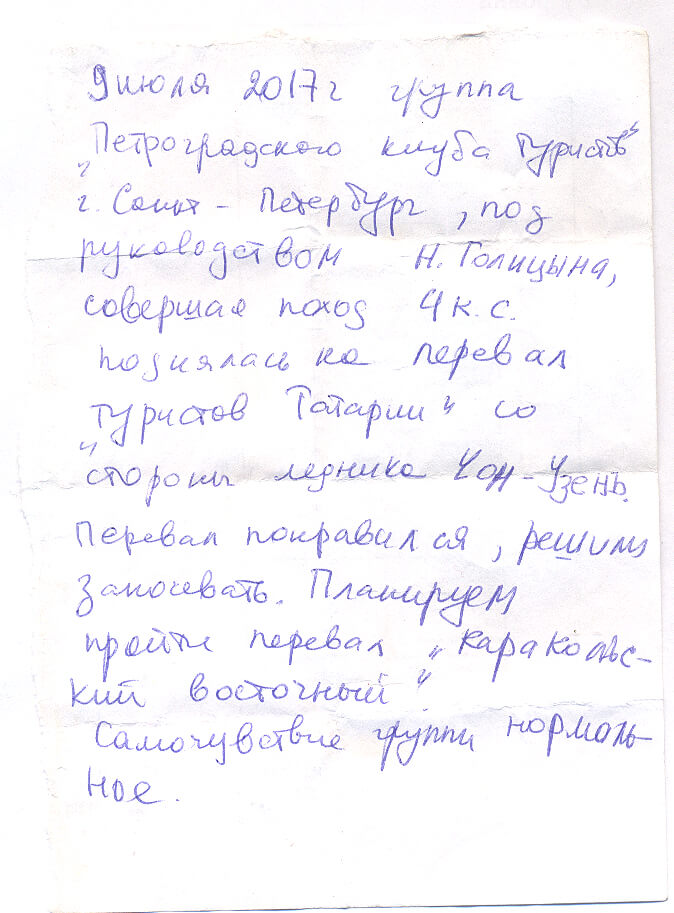 9 июля 2017г группа
"Петроградского клуба туристов"
г. Санкт-Петербург, под
руководством Н. Голицына,
совершая поход 4 к.с.
поднялась на перевал
"Туристов Татарии" со
стороны ледника Чон-Узень.
Перевал понравился, решили
заночевать. Планируем
пройти перевал "Каракольс-
кий восточный".
Самочувствие группы нормаль-
ное.